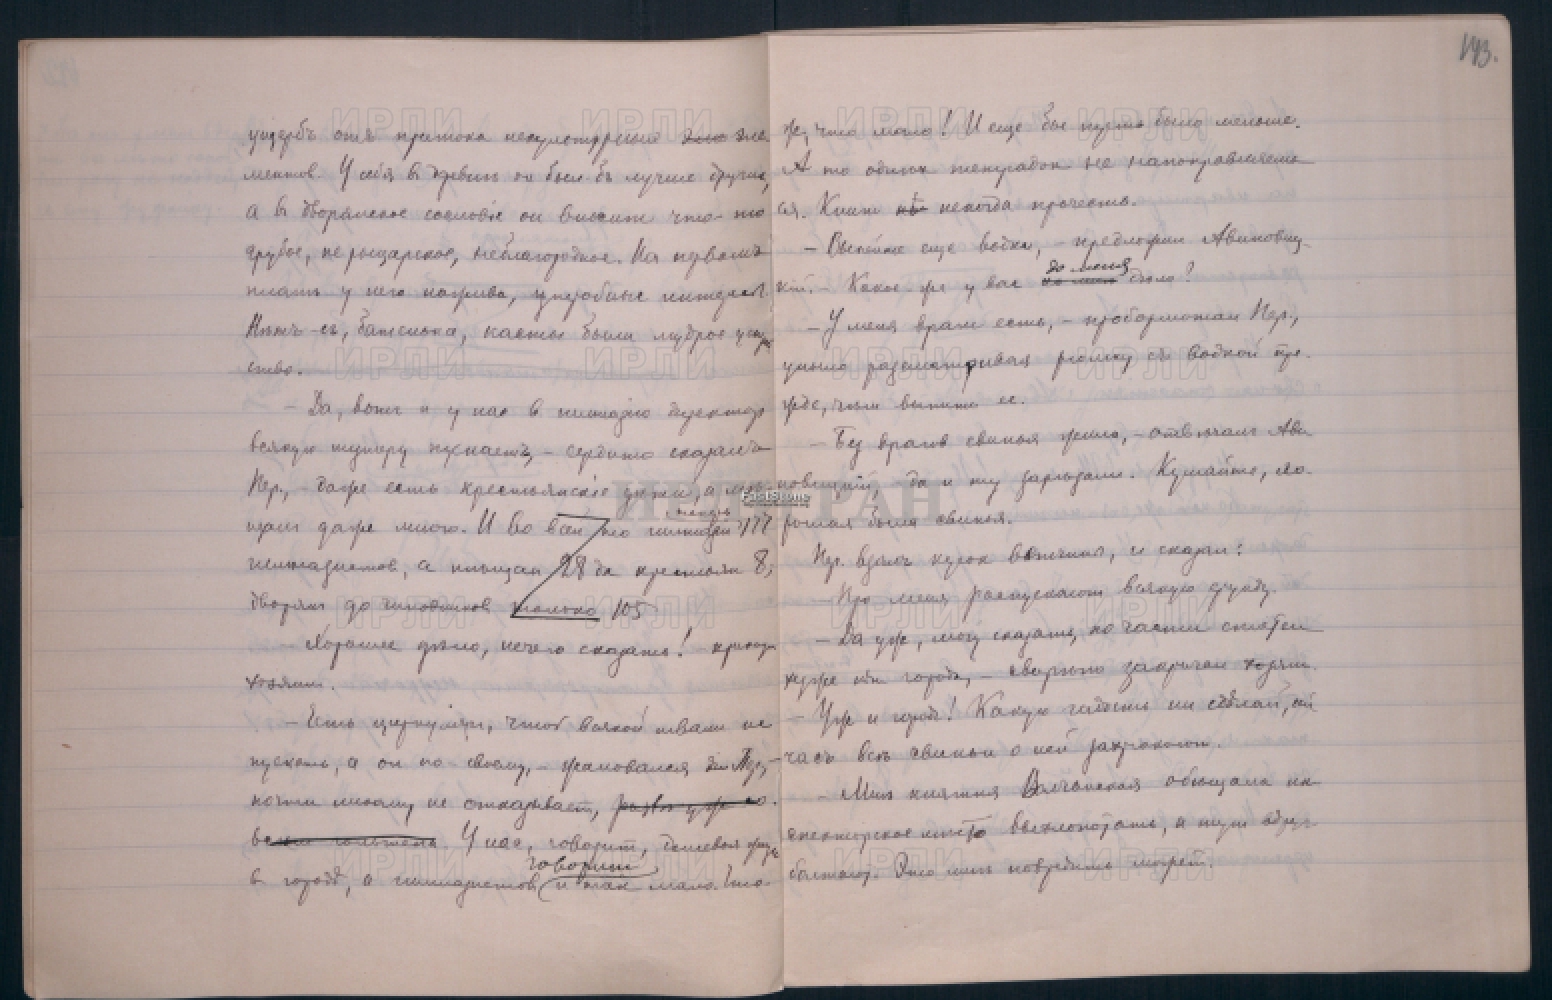 143.
ущербъ отъ притока некультурныхъ эле-
ментов. У себя в деревнѣ он был бъ лучше других,
а в дворянское сословіе он вноситъ что-то
грубое, не рыцарское, неблагородное. На первомъ
планѣ у него нажива, утробные интересы.
Нѣтъ-съ, батенька, касты были мудрое устрой
ство.
– Да, вотъ и у нас в гимназію директор
всякую шушеру пускаетъ, – сердито сказалъ
Пер., – даже есть крестьянскіе дѣти, а мѣ-
щан даже много. И во всей
гимназіи 177
гимназистов, а мѣщан 28 да крестьян 8,
дворян да чиновников только 105
– Хорошее дѣло, нечего сказать! – крикнул
хозяин.
– Есть циркуляр, чтоб всякой швали не
пускать, а он по-своему, – жаловался Пер., –
почти никому не отказывает,
У нас, говорит, дешевая жизнь
говорит
в городѣ, а гимназистов и такъ мало. Что
ж, что мало! И еще бы пусть было меньше.
А то одних тетрадок не напоправляешь-
ся. Книги некогда прочесть.
– Выпейте еще водки, – предложил Авиновиц-
до меня
кій. – Какое же у вас дѣло?
– У меня враги есть, – пробормотал Пер.,
уныло разсматривая рюмку съ водкой пре-
жде, чѣм выпить ее.
– Без врагов свинья жила, – отвѣчал Ави-
новицкій, – да и ту зарѣзали. Кушайте, хо-
рошая была свинья.
Пер. взялъ кусок ветчины, и сказал:
– Про меня распускают всякую ерунду.
– Да уж, могу сказать, по части сплетен
хуже нѣт города, – свирѣпо закричал хозяин.
– Уж и город! Какую гадость ни сдѣлай, сей
часъ всѣ свиньи о ней захрюкают.
– Мнѣ княгиня Волчанская обѣщала ин-
спекторское мѣсто выхлопотать, а тут вдруг
болтают. Это мнѣ повредить может.